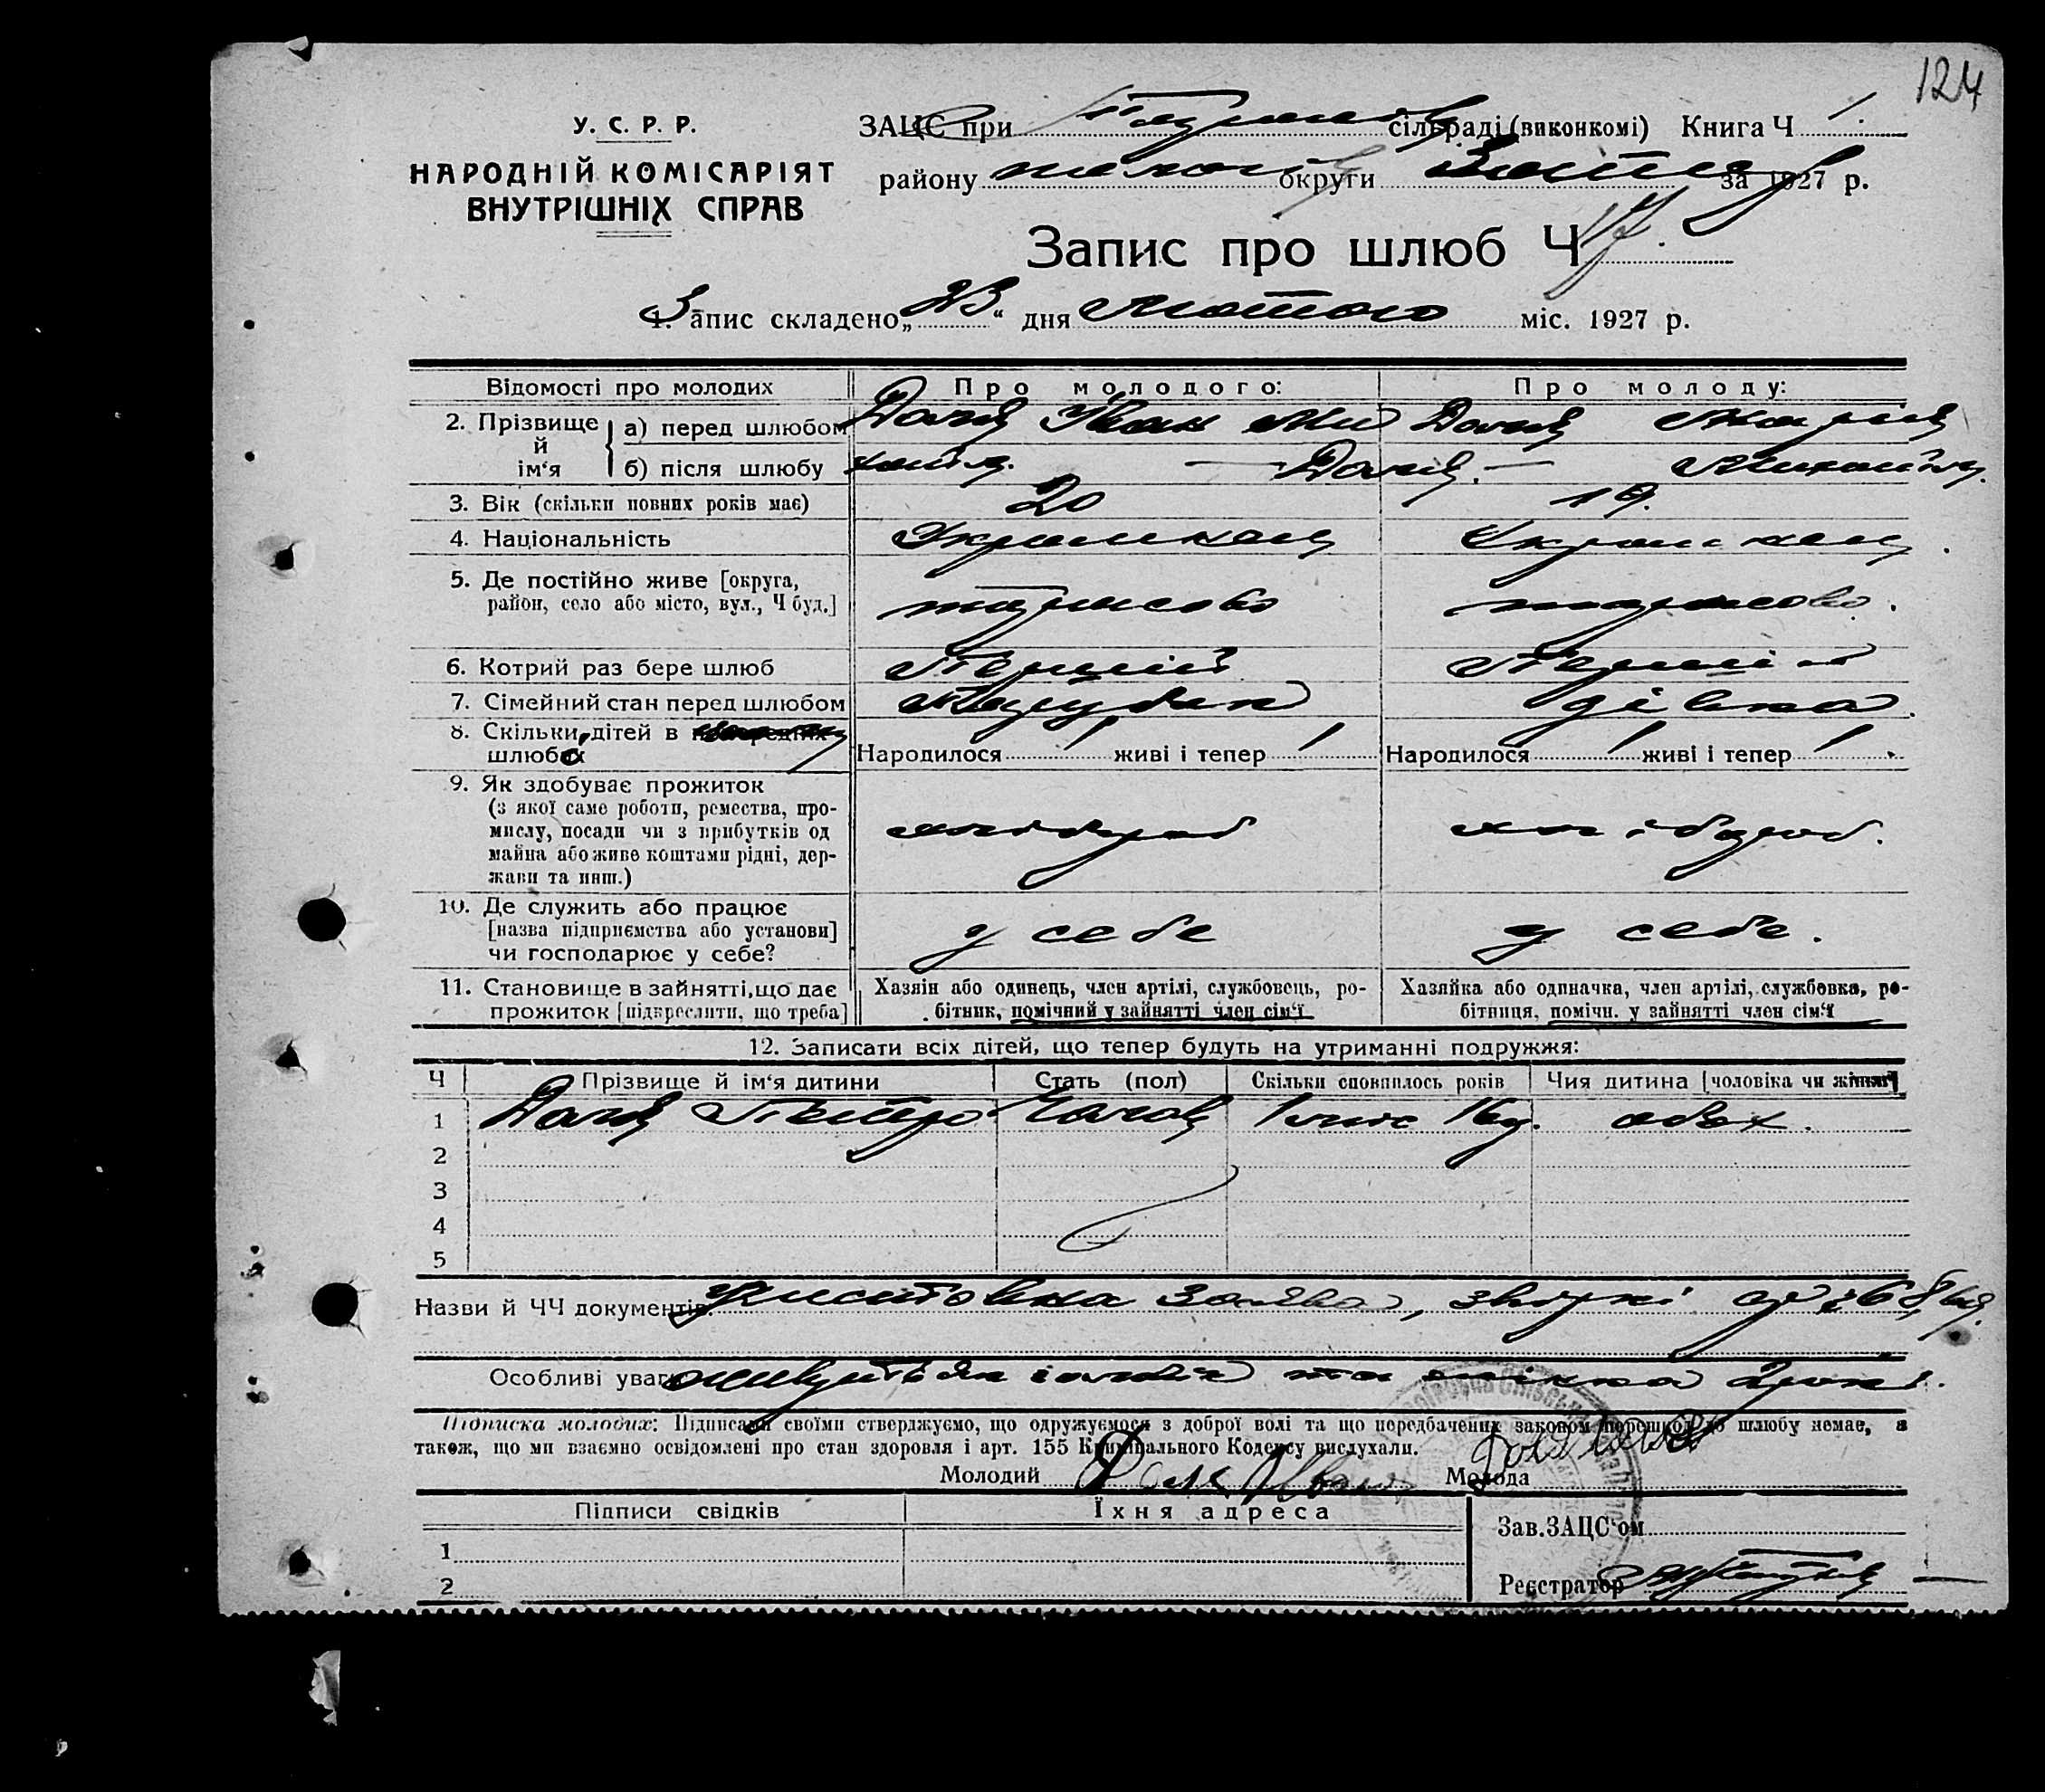 124
У. С. Р. Р.
НАРОДНІЙ КОМІСАРІЯТ
ВНУТРІШНІХ СПРАВ
ЗАЦС при сільраді (виконкомі) Книга Ч 1.
району округи за 1927 р.
Запис про шлюб Ч 17.
1. Запис складено „23“ дня Лютого міс. 1927 р.
Відомості про молодих Про молодого: Про молоду:
2. Прізвище й ім‘я а) перед шлюбом Іван Ми Марія
б) після шлюбу
3. Вік (скільки повних років має) 20 19.
4. Національність Украинець Украинець.
5. Де постійно живе [округа,
район, село або місто, вул., Ч буд.]
6. Котрий раз бере шлюб Перший Перший
7. Сімейний стан перед шлюбом Парубок дівка.
8. Скільки дітей в
шлюбі Народилося 1 живі і тепер 1 Народилося 1 живі і тепер 1.
9. Як здобуває прожиток
(з якої саме роботи, ремества, про-
мислу, посади чи з прибутків од
майна або живе коштами рідні, дер-
жави та инш.) хлібороб хлібороб.
10. Де служить або працює
[назва підприємства або установи]
чи господарює у себе? у себе у себе.
11. Становище в зайнятті, що дає
прожиток [підкреслити, що треба]
Хазяін або одинець, член артілі, службовець, ро-
бітник, помічний у зайнятті член сім‘ї
Хазяйка або одиначка, член артілі, службовка, ро-
бітниця, помічн. у зайнятті член сім‘ї
12. Записати всіх дітей, що тепер будуть на утриманні подружжя:
Ч Прізвище й ім‘я дитини Стать (пол) Скільки сповнилось років Чия дитина [чоловіка чи жінки]
1 Петро Чолов обох.
2
3
4
5
Назви й ЧЧ документів: заява,
Особливі уваги живуть як чоловік та жінка 2 роки.
Підписка молодих: Підписами своїми стверджуємо, що одружуємося з доброї волі та що передбачених законом перешкод до шлюбу немає, а
також, що ми взаємно освідомлені про стан здоровля і арт. 155 Кримінального Кодексу вислухали.
Молодий Іван Молода
Підписи свідків Їхня адреса
Зав. ЗАЦС‘ом
1
2
Реєстратор